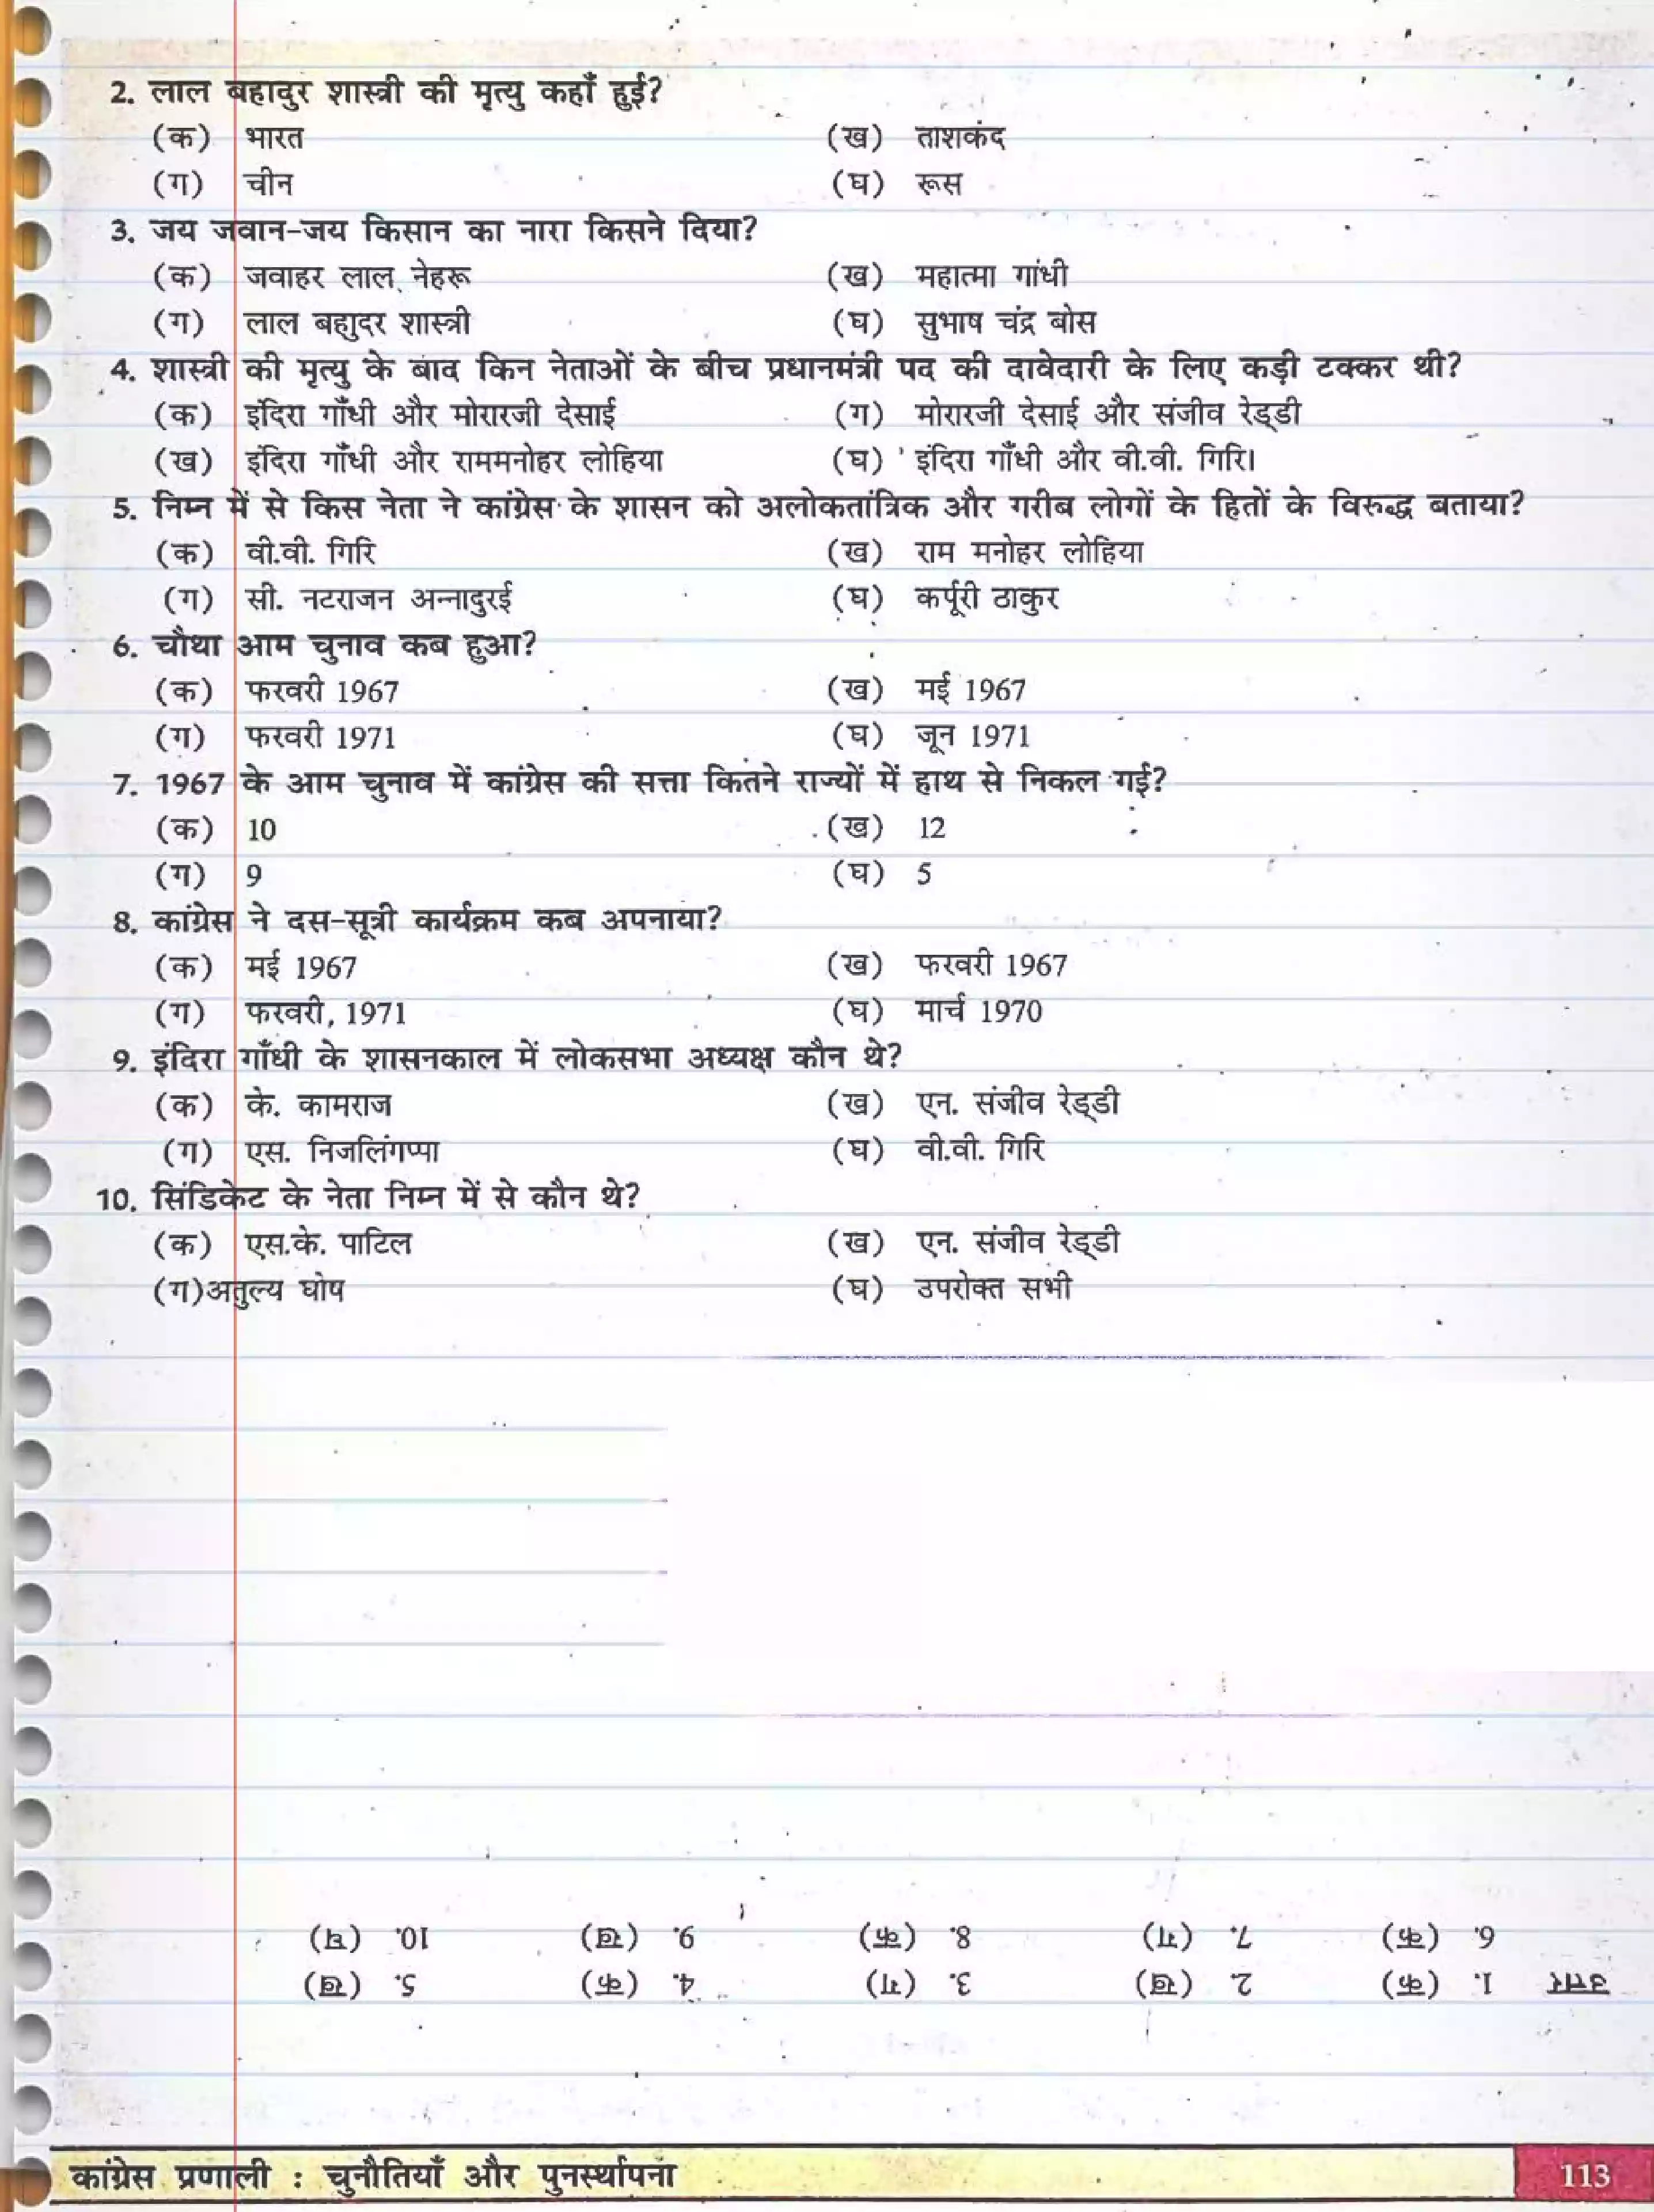 2. लाल बहादुर शास्त्री की मृत्यु कहाँ हुई?
(क) भारत (ख) ताशकंद
(ग) चीन (घ) रूस
3. जय जवान-जय किसान का नारा किसने दिया?
(क) जवाहर लाल नेहरू (ख) महात्मा गांधी
(ग) लाल बहाुदर शास्त्री (घ) सुभाष चंद्र बोस
4. शास्त्री की मृत्यु के बाद किन नेताओं के बीच प्रधानमंत्री पद की दावेदारी के लिए कड़ी टक्कर थी?
(क) इंदिरा गाँधी और मोरारजी देसाई (ग) मोरारजी देसाई और संजीव रेड्डी
(ख) इंदिरा गाँधी और राममनोहर लोहिया (घ) इंदिरा गाँधी और वी.वी. गिरि।
5. निम्न में से किस नेता ने कांग्रेस के शासन को अलोकतांत्रिक और गरीब लोगों के हितों के विरुद्ध बताया?
(क) वी.वी. गिरि (ख) राम मनोहर लोहिया
(ग) सी. नटराजन अन्नादुरई (घ) कर्पूरी ठाकुर
6. चौथा आम चुनाव कब हुआ?
(क) फरवरी 1967 (ख) मई 1967
(ग) फरवरी 1971 (घ) जून 1971
7. 1967 के आम चुनाव में कांग्रेस की सत्ता कितने राज्यों में हाथ से निकल गई?
(क) 10 (ख) 12
(ग) 9 (घ) 5
8. कांग्रेस ने दस-सूत्री कार्यक्रम कब अपनाया?
(क) मई 1967 (ख) फरवरी 1967
(ग) फरवरी, 1971 (घ) मार्च 1970
9. इंदिरा गाँधी के शासनकाल में लोकसभा अध्यक्ष कौन थे?
(क) के. कामराज (ख) एन. संजीव रेड्डी
(ग) एस. निजलिंगप्पा (घ) वी.वी. गिरि
10. सिंडिकेट के नेता निम्न में से कौन थे?
(क) एस.के. पाटिल (ख) एन. संजीव रेड्डी
(ग)अतुल्य घोष (घ) उपरोक्त सभी
उत्तर 1. (क) 2. (ख) 3. (ग) 4. (क) 5. (ख)
6. (क) 7. (ग) 8. (क) 9. (ख) 10. (घ)
कांग्रेस प्रणाली : चुनौतियाँ और पुनर्स्थापना 113